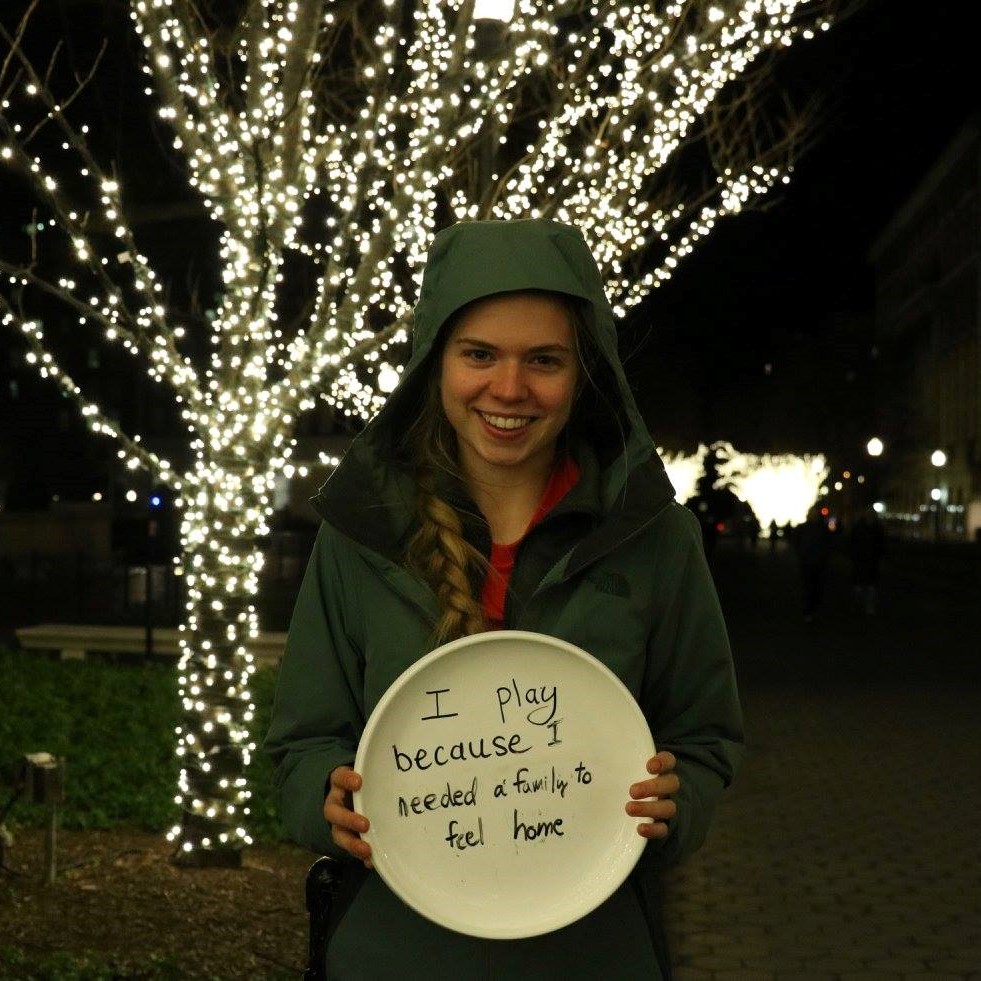 I play
because I
needed a family to
feel home